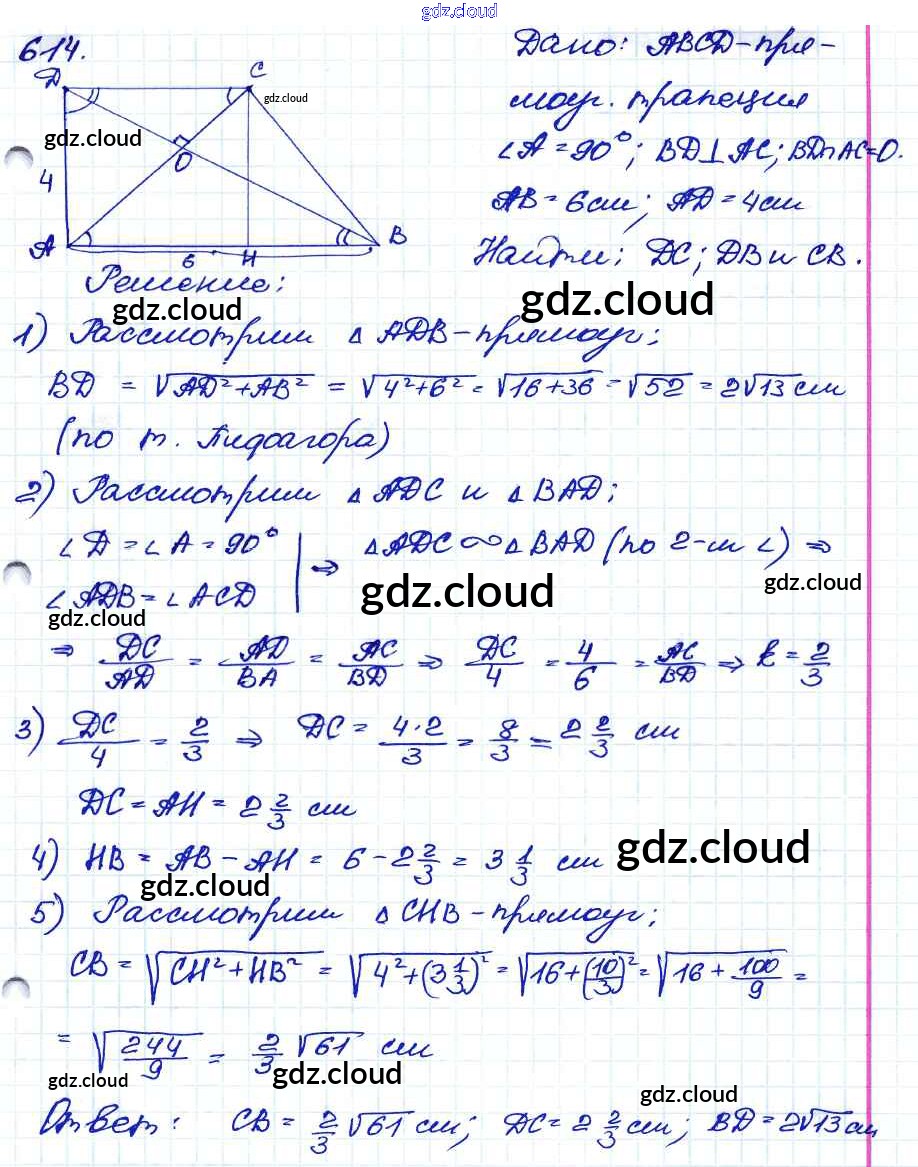 gdz.cloud
614.
Дано: ABCD-пря-
моуг. трапеция
∠A = 90°; BD⊥AC; BD∩AC=O.
AB = 6см; AD = 4см
Найти: DC; DB и CB.
D
C
gdz.cloud
gdz.cloud
O
4
A
6
H
B
gdz.cloud
Решение:
gdz.cloud
1) Рассмотрим △ ADB-прямоуг;
BD = √AD²+AB² = √4²+6² = √16+36 = √52 = 2√13 см
(по т. Пифагора)
2) Рассмотрим △ ADC и △ BAD;
∠D = ∠A = 90°
∠ADB = ∠ACD
⇒ △ADC ∞ △BAD (по 2-м ∠) ⇒
gdz.cloud
gdz.cloud
gdz.cloud
⇒ DC/AD = AD/BA = AC/BD ⇒ DC/4 = 4/6 = AC/BD ⇒ k = 2/3
3) DC/4 = 2/3 ⇒ DC = 4·2/3 = 8/3 = 2 2/3 см
DC = AH = 2 2/3 см
4) HB = AB - AH = 6 - 2 2/3 = 3 1/3 см
gdz.cloud
gdz.cloud
5) Рассмотрим △ CHB-прямоуг;
CB = √CH²+HB² = √4²+(3 1/3)² = √16+(10/3)² = √16+100/9 =
= √244/9 = 2/3 √61 см
gdz.cloud
gdz.cloud
gdz.cloud
Ответ: CB = 2/3 √61 см; DC = 2 2/3 см; BD = 2√13 см